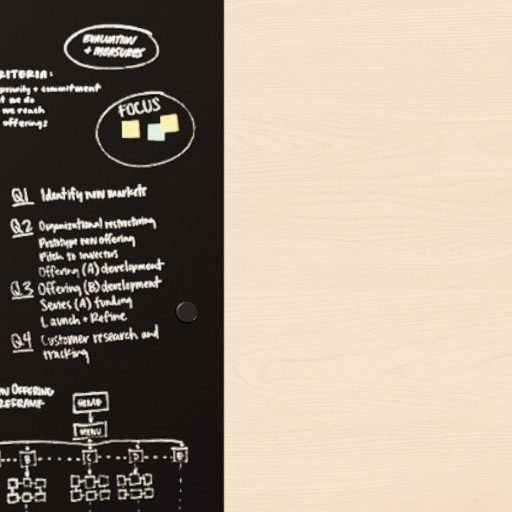 EVALUATION
+ MEASURES
RITERIA:
priority + commitment
t we do
we reach
offerings
FOCUS
Q1 Identify new markets
Q2 Organizational restructuring
Prototype new offering
Pitch to investors
Offering (A) development
Q3 Offering (B) development
Series (A) funding
Launch + Refine
Q4 Customer research and
tracking
W OFFERING
REFRAME
HOME
MENU
B C D E